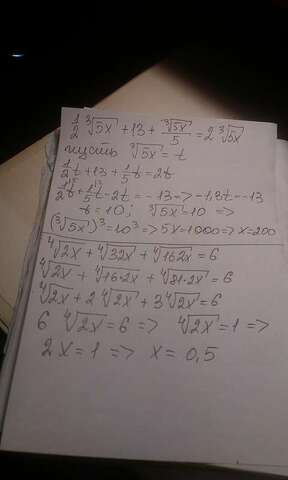 1/2 ∛5x + 13 + ∛5x/5 = 2 ∛5x
пусть ∛5x = t
1/2 t + 13 + 1/5 t = 2t
1/2 t + 1/5 t - 2t = -13 => -1,3t = -13
t = 10; ∛5x = 10 =>
(∛5x)³ = 10³ => 5x = 1000 => x = 200
∜2x + ∜32x + ∜162x = 6
∜2x + ∜16·2x + ∜81·2x = 6
∜2x + 2 ∜2x + 3 ∜2x = 6
6 ∜2x = 6 => ∜2x = 1 =>
2x = 1 => x = 0,5